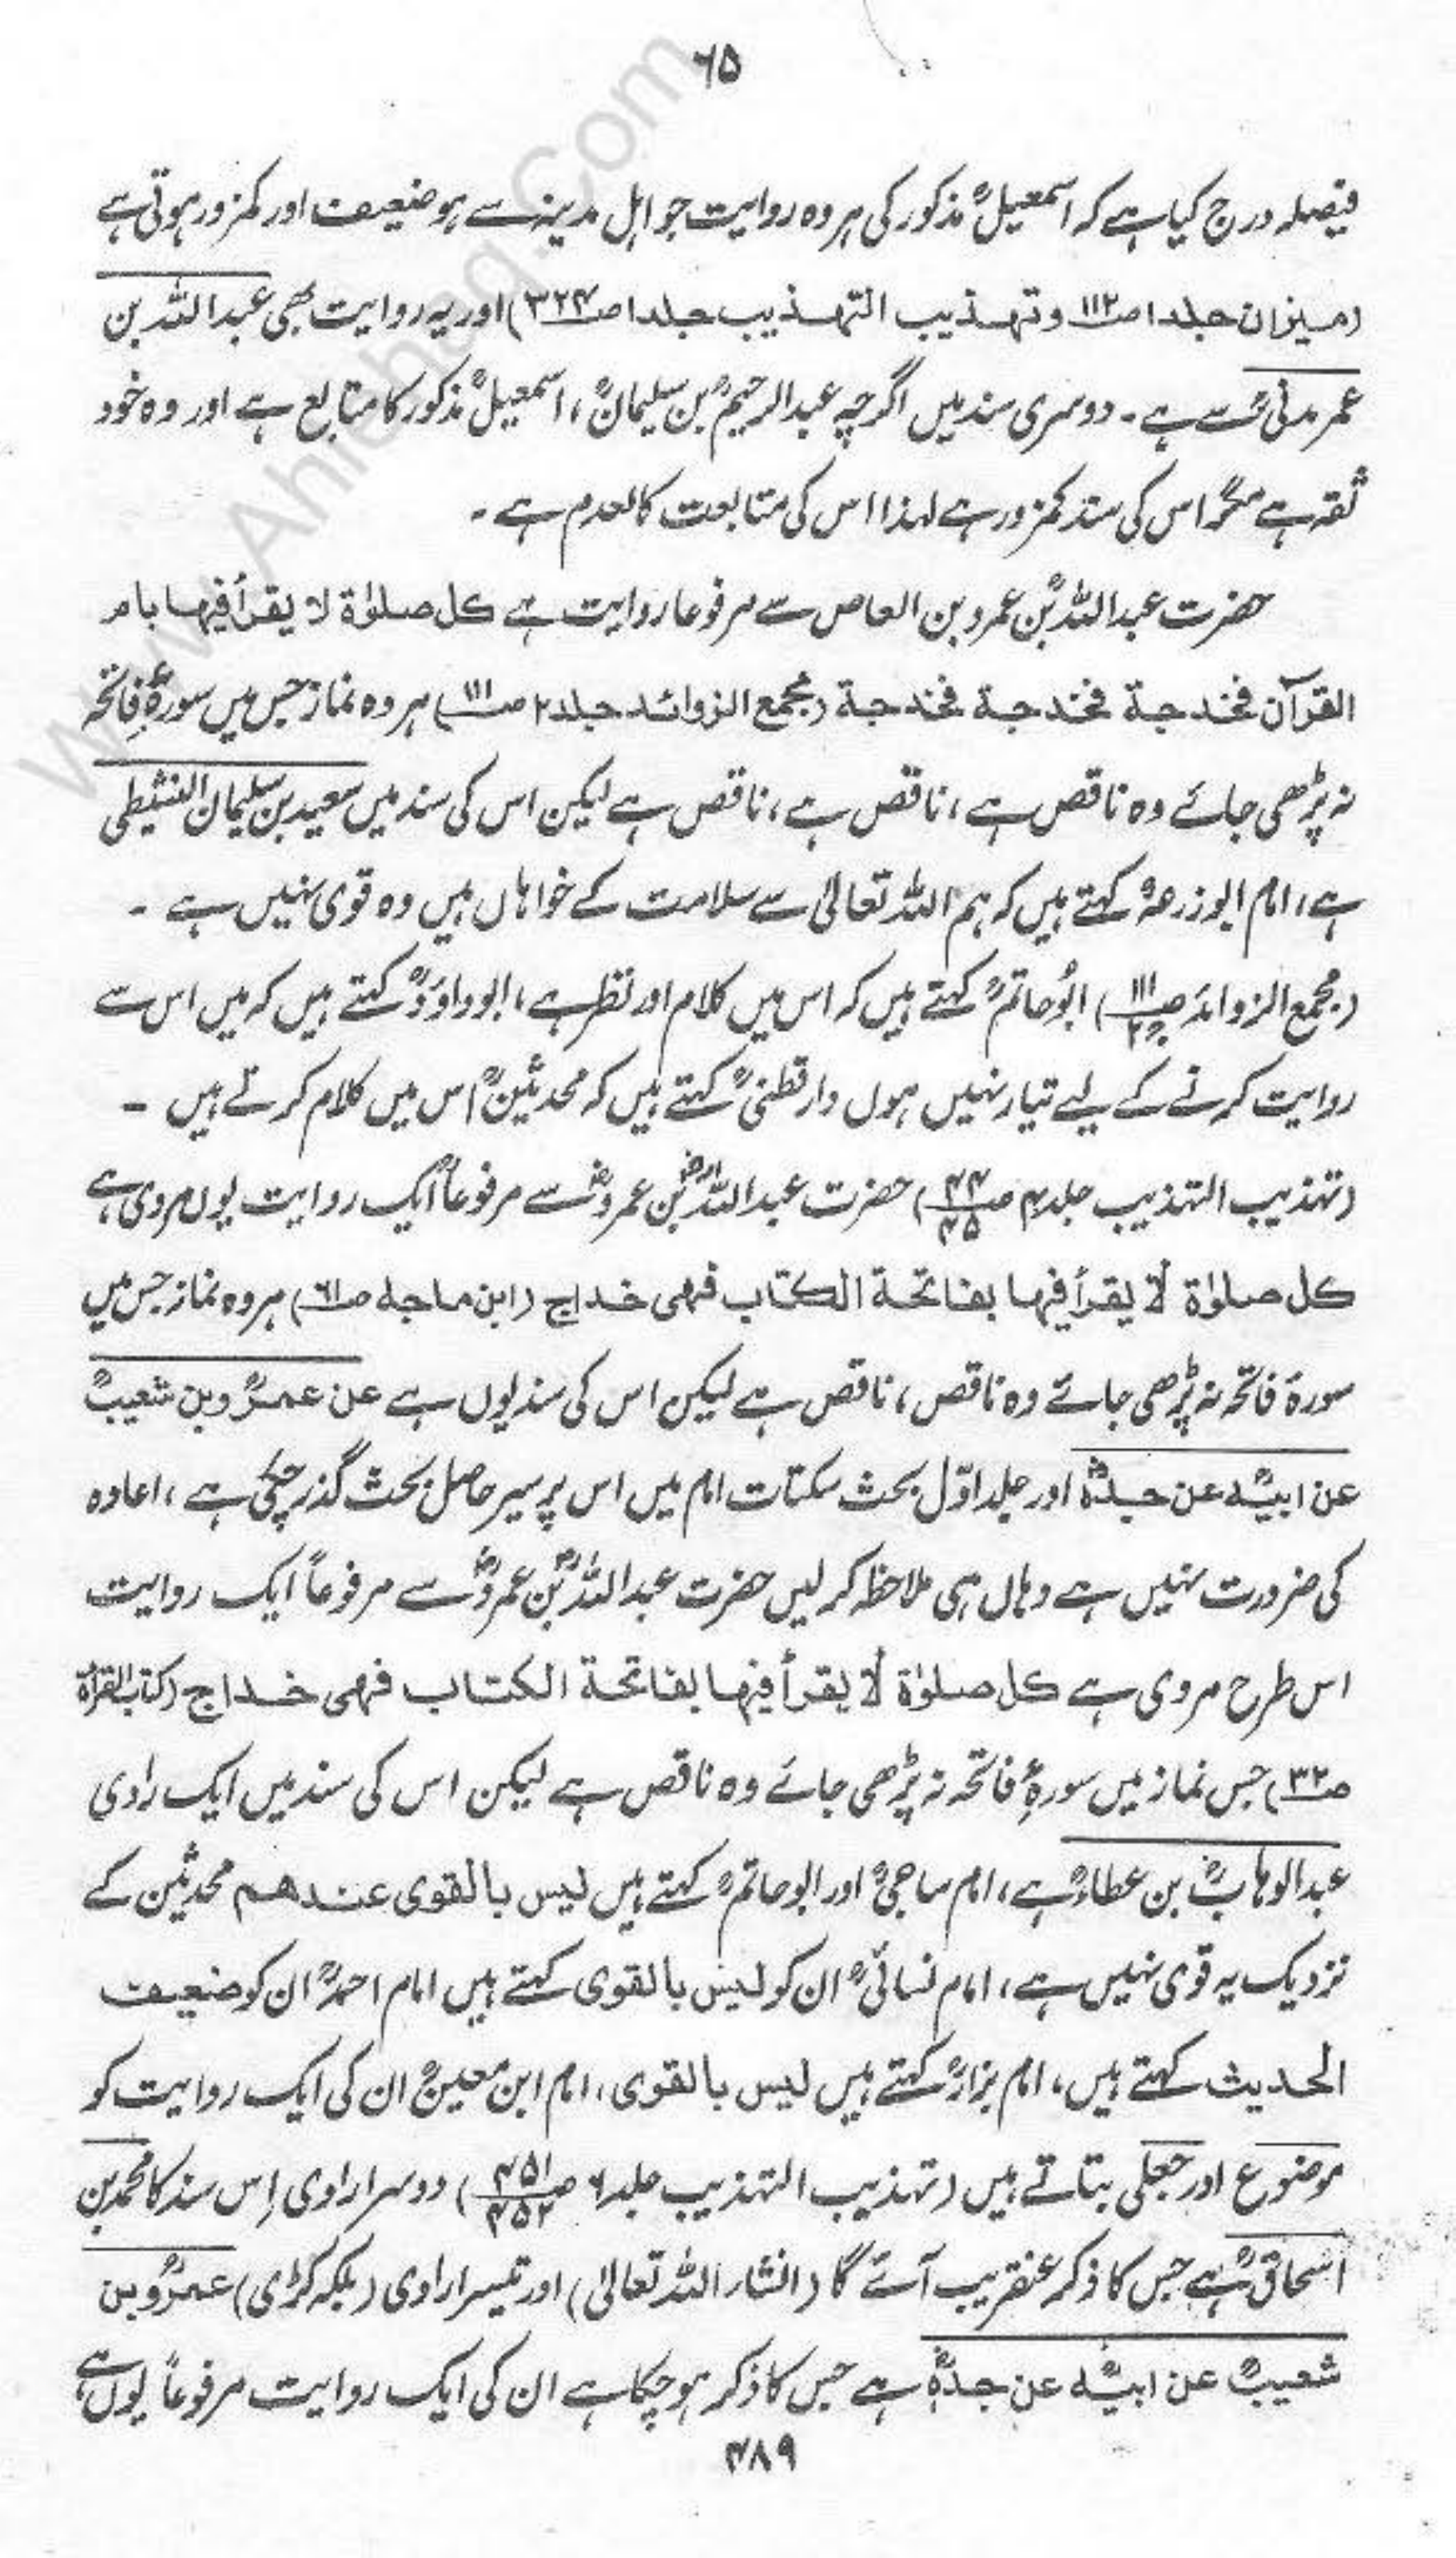 ۶۵
www.Ahlehaq.Com
فیصلہ درج کیا ہے کہ اسمٰعیلؒ مذکور کی ہر وہ روایت جو اہل مدینہ سے ہو ضعیف اور کمزور ہوتی ہے
(میزان جلد۱ ص۱۱۲ وتہذیب التہذیب جلد۱ ص۳۲۴) اور یہ روایت بھی عبداللہ بن
عمر مدنیؒ سے ہے۔ دوسری سند میں اگرچہ عبدالرحیمؒ بن سلیمانؒ، اسمٰعیلؒ مذکور کا متابع ہے اور وہ خود
ثقہ ہے مگر اس کی سند کمزور ہے لہذا اس کی متابعت کالعدم ہے۔
حضرت عبداللہؓ بن عمرو بن العاص سے مرفوعا روایت ہے کل صلوٰۃ لا یقرأ فیھا بام
القرآن فخدجۃ فخدجۃ فخدجۃ (مجمع الزوائد جلد۲ ص۱۱۱) ہر وہ نماز جس میں سورۂ فاتحہ
نہ پڑھی جائے وہ ناقص ہے، ناقص ہے، ناقص ہے لیکن اس کی سند میں سعید بن سلیمان النشیطی
ہے، امام ابوزرعہؒ کہتے ہیں کہ ہم اللہ تعالیٰ سے سلامت کے خواہاں ہیں وہ قوی نہیں ہے ۔
(مجمع الزوائد ص۱۱۱ ج۲) ابُوحاتمؒ کہتے ہیں کہ اس میں کلام اور نظر ہے، ابوداؤدؒ کہتے ہیں کہ میں اس سے
روایت کرنے کے لیے تیار نہیں ہوں دارقطنیؒ کہتے ہیں کہ محدثینؒ اس میں کلام کرتے ہیں ۔
(تہذیب التہذیب جلد۴ ص۴۴ ۴۵) حضرت عبداللہؓ بن عمروؓ سے مرفوعاً ایک روایت یوں مروی ہے
کل صلوٰۃ لا یقرأ فیھا بفاتحۃ الکتاب فھی خداج (ابن ماجہ ص۶۱) ہر وہ نماز جس میں
سورۃ فاتحہ نہ پڑھی جائے وہ ناقص، ناقص ہے لیکن اس کی سند یوں ہے عن عمرؒو بن شعیبؒ
عن ابیہؒ عن جدہؓ اور جلد اوّل بحث سکتات امام میں اس پر سیر حاصل بحث گذر چکی ہے، اعادہ
کی ضرورت نہیں ہے وہاں ہی ملاحظہ کر لیں حضرت عبداللہؓ بن عمروؓ سے مرفوعاً ایک روایت
اس طرح مروی ہے کل صلوٰۃ لا یقرأ فیھا بفاتحۃ الکتاب فھی خداج (کتاب القراۃ
ص۳۲) جس نماز میں سورۂ فاتحہ نہ پڑھی جائے وہ ناقص ہے لیکن اس کی سند میں ایک راوی
عبدالوہابؒ بن عطاءؒ ہے، امام ساجیؒ اور ابوحاتمؒ کہتے ہیں لیس بالقوی عندھم محدثین کے
نزدیک یہ قوی نہیں ہے، امام نسائیؒ ان کو لیس بالقوی کہتے ہیں امام احمدؒ ان کو ضعیف
الحدیث کہتے ہیں، امام بزارؒ کہتے ہیں لیس بالقوی، امام ابن معینؒ ان کی ایک روایت کو
موضوع اور جعلی بتاتے ہیں (تہذیب التہذیب جلد۶ ص۴۵۱ ۴۵۲) دوسرا راوی اِس سند کا محمد بن
اسحاقؒ ہے جس کا ذکر عنقریب آئے گا (انشاراللہ تعالیٰ) اور تیسرا راوی (بلکہ کڑی) عمرؒو بن
شعیبؒ عن ابیہؒ عن جدہؓ ہے جس کا ذکر ہو چکا ہے ان کی ایک روایت مرفوعاً یوں ہے
۴۸۹